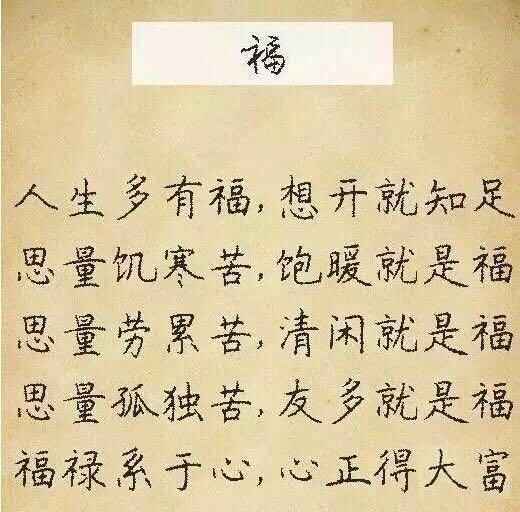 福
人生多有福,想开就知足
思量饥寒苦,饱暖就是福
思量劳累苦,清闲就是福
思量孤独苦,友多就是福
福禄系于心,心正得大富